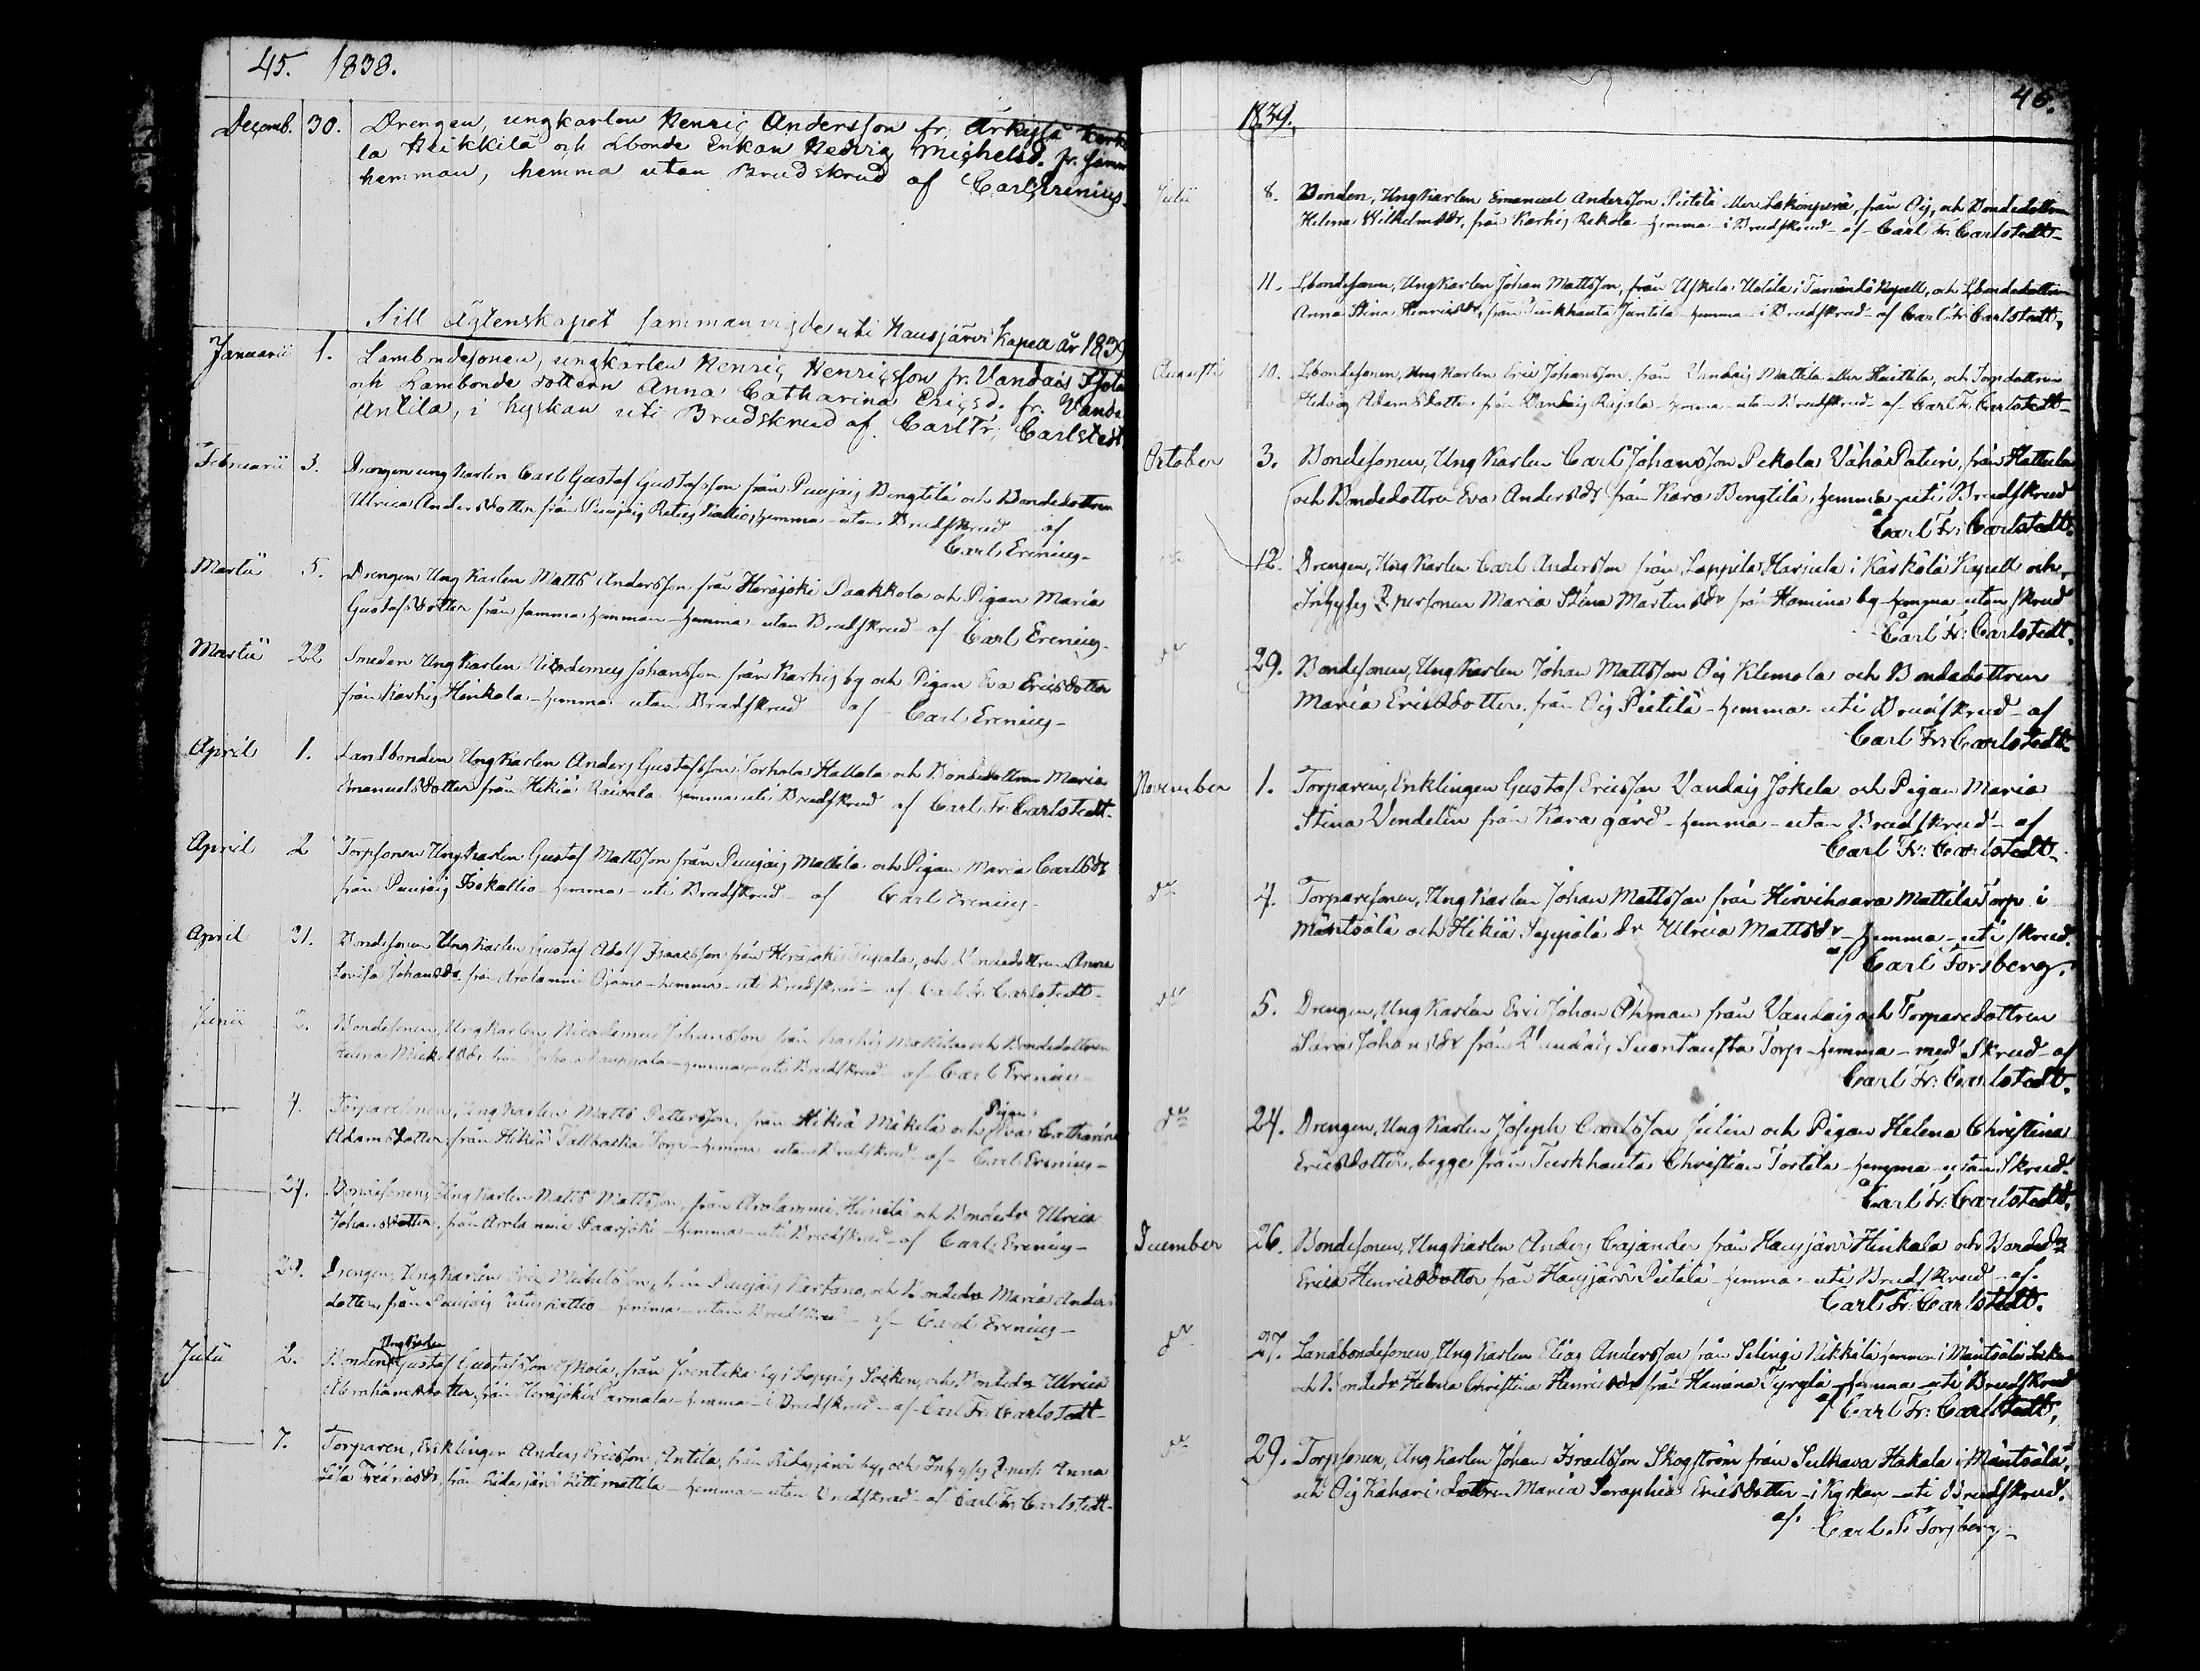 45. 1838.
Decemb. 30. Drengen, ungkarlen Henric Andersson fr. Arkylä
la Heikkilä och Lbonde Enkan Hedvig Michelsd. fr. samm
hemman, hemma utan Brudskrud af Carl Erenius.
Till Ägtenskapet sammanvigde uti Hausjärvi Kapell år 1839
Januarii 1. Lambondesonen, ungkarlen Henric Henricsson fr. Vandais
och Lambonde dottern Anna Catharina Ericsd. fr. Vanda
Antila, i kyrkan uti Brudskrud af Carl Fr. Carlstedt
Februarii 3. Drengen ungkarlen Carl Gustaf Gustafsson från Puujais Bengtilä och Bondedottren
Ulrica Andersdotter från Puujais Kallio, hemma utan Brudskrud af
Carl Erenius-
Martii 5. Drengen Ungkarlen Matts Andersson från Herajoki Paakkola och Pigan Maria
Gustafsdotter från samma hemman - hemma utan Brudskrud - af Carl Erenius-
Martii 22 Smeden Ungkarlen Johansson från Karhis by och Pigan Eva Ericsdotter
från Karhis Hinkala - hemma utan Brudskrud af Carl Erenius-
April 1. Landbonden Ungkarlen Anders Gustafsson Torhola Hallala och Bondedottren Maria
Emanuelsdotter från Hikiä Raivala hemma uti Brudskrud af Carl Fr. Carlstedt-
April 2 Torpsonen Ungkarlen Gustaf Mattsson från Puujais Mattila och Pigan Maria Carlsdr
från Puujais Isokallio - hemma - uti Brudskrud - af Carl Erenius-
April 31. Bondesonen Ungkarlen Gustaf Adolf Isaacsson från Herajoki och Bondedottren Anna
Lovisa Johansdr från Arolammi - hemma - uti Brudskrud - af Carl Fr. Carlstedt-
Junii 2. Bondesonen, Ungkarlen Nicodemus Johansson från Karhis Mäkilä och Bondedottren
Helena Michelsdr från - hemma - uti Brudskrud - af Carl Erenius-
4. Torparesonen, Ungkarlen Matts Pettersson, från Hikiä Mäkelä och Pigan Eva Catharina
Adamsdotter från Hikiä Torp - hemma utan Brudskrud - af - Carl Erenius-
24. Bondesonen, Ungkarlen Matts Mattsson, från Arolammi, och Bondedr Ulrica
Johansdotter, från Arolammi Paarjoki - hemma - uti Brudskrud - af Carl Erenius-
29. Drengen, Ungkarlen Eric Michelsson, från Puujais och Bondedr Maria Anders
dotter, från Puujais - hemma - utan Brudskrud - af - Carl Erenius-
Julii 2. Bonden Ungkarlen Gustaf Gustafsson från by i Loppis Socken, och Bondedr Ulrica
Abrahamsdotter, från Herajoki Parmala - hemma - i Brudskrud - af Carl Fr. Carlstedt-
7. Torparen, Enklingen Anders Ericsson Antila, från Ridasjärvi by, och Inhyses Anna
Lisa Fredricsdr, från Ridasjärvi - hemma - utan Brudskrud - af Carl Fr. Carlstedt-
46.
1839.
Julii 8. Bonden, Ungkarlen Emanuel Andersson Pietilä eller från Oij, och Bondedottren
Helena Wilhelmsdr, från Karhis Rekola - hemma - i Brudskrud - af - Carl Fr. Carlstedt-
11. Lbondesonen, Ungkarlen Johan Mattsson, från Uskela i Kapell, och Lbondedottren
Anna Stina Henricsdr, från Turkhauta Juntila - hemma - i Brudskrud - af Carl Fr. Carlstedt,
Augusti 10. Lbondesonen, Ungkarlen Eric Johansson, från Vandais Mattila eller och Torpdottren
Hedvig Adamsdotter från Vandais - hemma - utan Brudskrud - af - Carl Fr. Carlstedt-
October 3. Bondesonen, Ungkarlen Carl Johansson Pekola Vähä Paturi, från Hattula
och Bondedottren Eva Andersdr från Kara Bengtilä, hemma - uti Brudskrud
Carl Fr. Carlstedt.
12. Drengen, Ungkarlen Carl Andersson från Lappila Harjula i Kärkölä Kapell och
Inhyses Qpersonen Maria Stina Mårtensdr från Homina by hemma - utan skrud
Carl Fr. Carlstedt.
do 29. Bondesonen, Ungkarlen Johan Mattsson Oij Klemola och Bondedottren
Maria Ericsdotter, från Oij Pietilä - hemma - uti Brudskrud - af
Carl Fr. Carlstedt-
November 1. Torparen, Enklingen Gustaf Ericsson Vandais Jokela och Pigan Maria
Stina Vendelin från Kara gård - hemma - utan Brudskrud - af
Carl Fr. Carlstedt-
do 4. Torparesonen, Ungkarlen Johan Mattsson från Hirvihaara Mattila Torp i
Mäntsälä och Hikiä Seppälä dr Ulrica Mattsdr - hemma - uti skrud.
af Carl Forsberg.
do 5. Drengen, Ungkarlen Eric Johan Öhman från Vandais och Torparedottren
Sara Johansdr från Vandais Torp - hemma - med Skrud - af
Carl Fr. Carlstedt.
do 24. Drengen, Ungkarlen Joseph Carlsson Julin och Pigan Helena Christina
Ericsdotter, begge från Turkhauta Christian Tortila - hemma - utan Skrud.
Carl Fr. Carlstedt.
December 26. Bondesonen, Ungkarlen Anders Cajander från Hausjärvi Hinkala och Bondedn
Erica Henricsdotter från Hausjärvi Pietilä - hemma - uti Brudskrud - af.
Carl Fr. Carlstedt.
do 27. Landbondesonen, Ungkarlen Elias Andersson från Selinge Nikkilä hemman i Mäntsälä Sokn
och Bondedr Helena Christina Henricsdr från Hamina - hemma - uti Brudskrud
af Carl Fr. Carlstedt,
do 29. Torpsonen, Ungkarlen Johan Israelsson Skogström från Sulkava Hakala i Mäntsälä,
och Oij Kahari dottren Maria Seraphia Ericsdotter - i kyrkan - uti Brudskrud.
af. Carl Fr Forsberg-